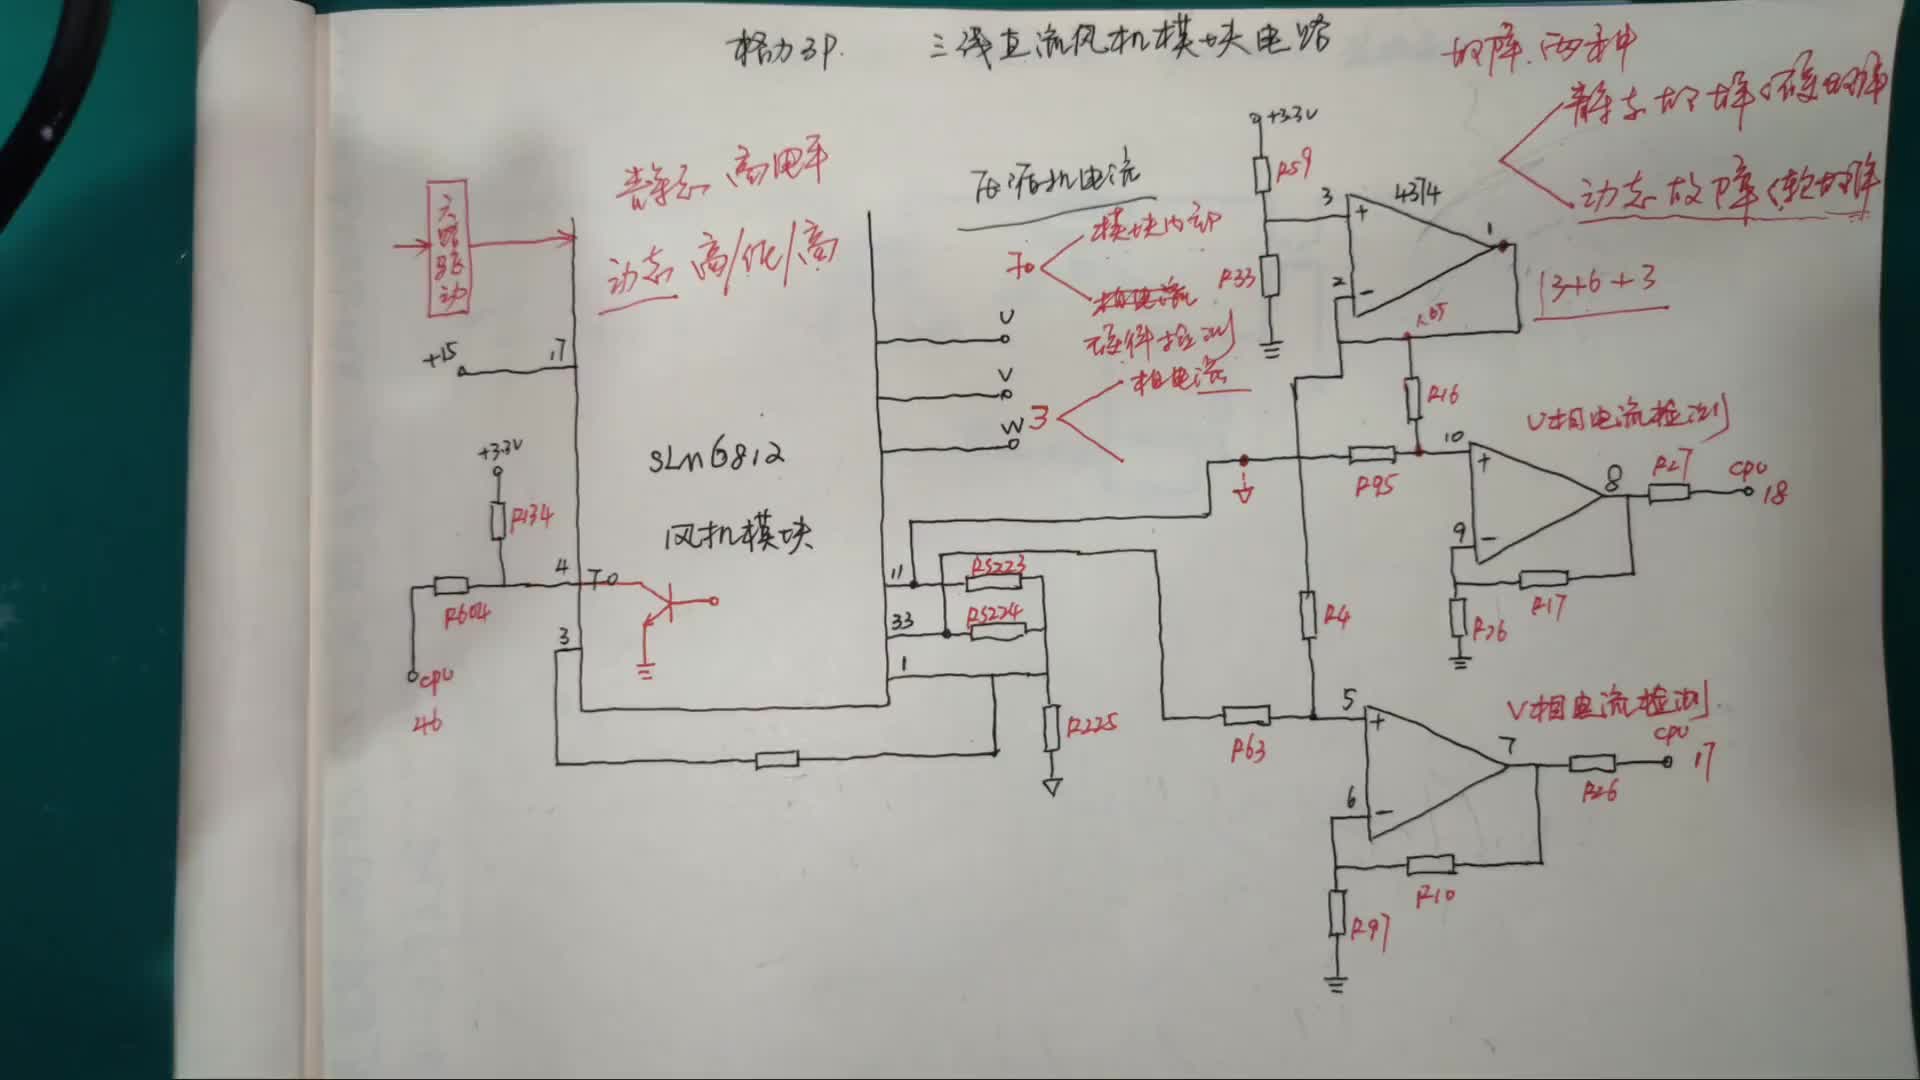 格力3P. 三线直流风机模块电路
故障.两种
静态故障(硬故障
动态故障(软故障
13+6+3
六路驱动
静态 高电平
动态 高/低/高
压缩机电流
70
模块内部
相电流
硬件检测
3
相电流
+15
17
+3.3V
R134
R604
CPU
46
4
70
3
SLM6812
风机模块
U
V
W
11
33
1
RS223
RS224
R225
+3.3V
R59
R33
3
2
+
-
4374
1
1.65
R16
R95
R4
R63
U相电流检测
10
9
+
-
8
R27
CPU
18
R17
R36
V相电流检测
5
6
+
-
7
R26
CPU
17
R10
R97